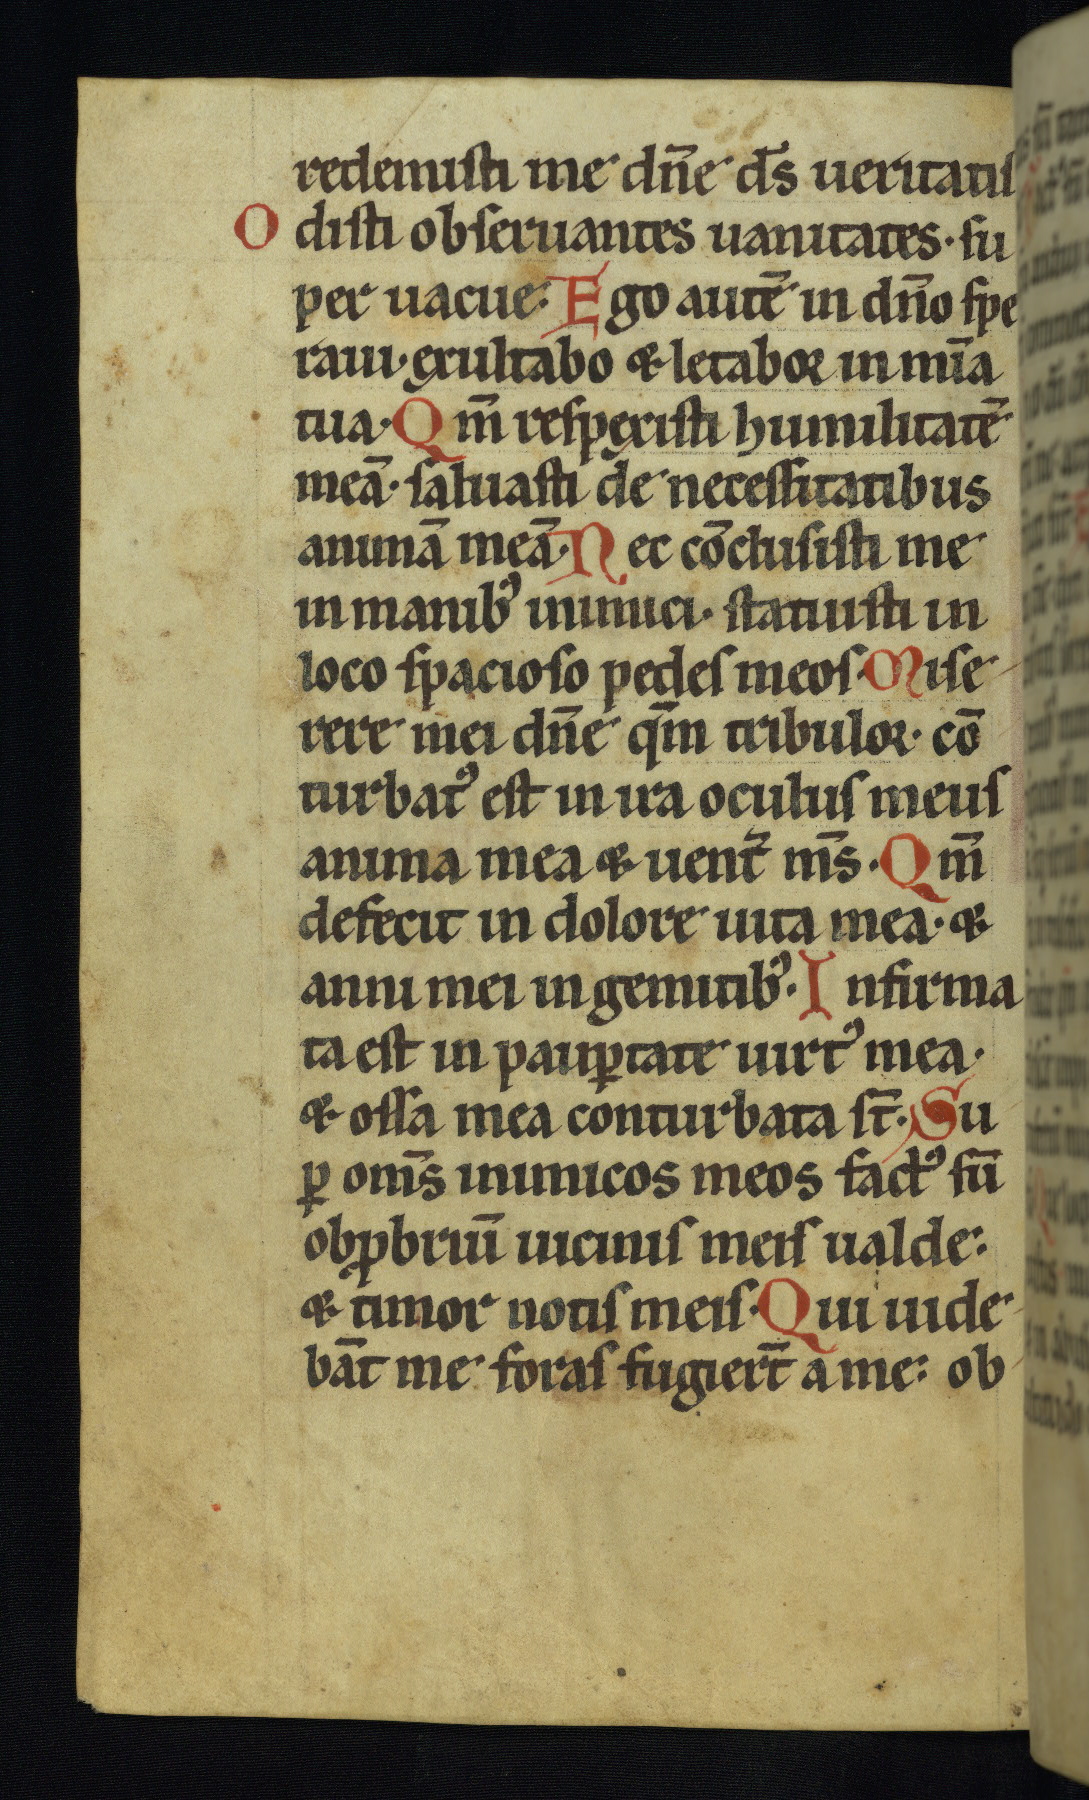 redemisti me dn̄e d̄s ueritatis
Odisti obseruantes uanitates· su
per uacue: Ego autē in dn̄o spe
raui· exultabo & letabor in mīa
tua· Qm̄ respexisti humilitatē
meā· saluasti de necessitatibus
animā meā· Nec cōclusisti me
in manibꝰ inimici· statuisti in
loco spacioso pedes meos· Mise
rere mei dn̄e qm̄ tribulor· cō
turbatꝰ est in ira oculus meus
anima mea & uent̄ m̄s· Qm̄
defecit in dolore uita mea· &
anni mei in gemitibꝰ· Infirma
ta est in pauꝑtate uirtꝰ mea·
& ossa mea conturbata st̄· Su
ꝑ om̄s inimicos meos factꝰ sū
obꝓbriū uicinis meis ualde:
& timor notis meis· Qui uide
bāt me foras fugiert̄ a me: ob